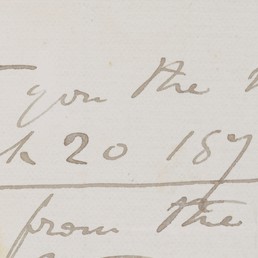 you the
20 187
from the